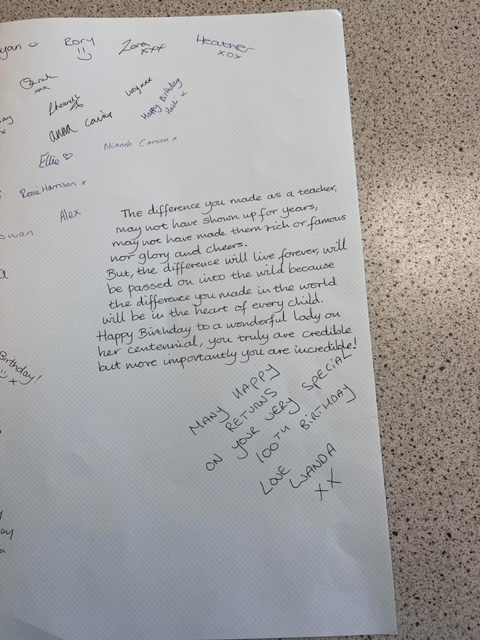 Rory
Zara xxx
Heather
xox
Sarah
xxx
Lucy xxx
Happy Birthday
x
anna
Ellie ♡
Niamh Carson x
Rosie Harrison x
Alex
The difference you made as a teacher,
may not have shown up for years,
may not have made them rich or famous
nor glory and cheers.
But, the difference will live forever, will
be passed on into the wild because
the difference you made in the world
will be in the heart of every child.
Happy Birthday to a wonderful lady on
her centennial, you truly are credible
but more importantly you are incredible!
Birthday!
x
MANY HAPPY
RETURNS
ON YOUR VERY SPECIAL
100TH BIRTHDAY
LOVE
WANDA
XX